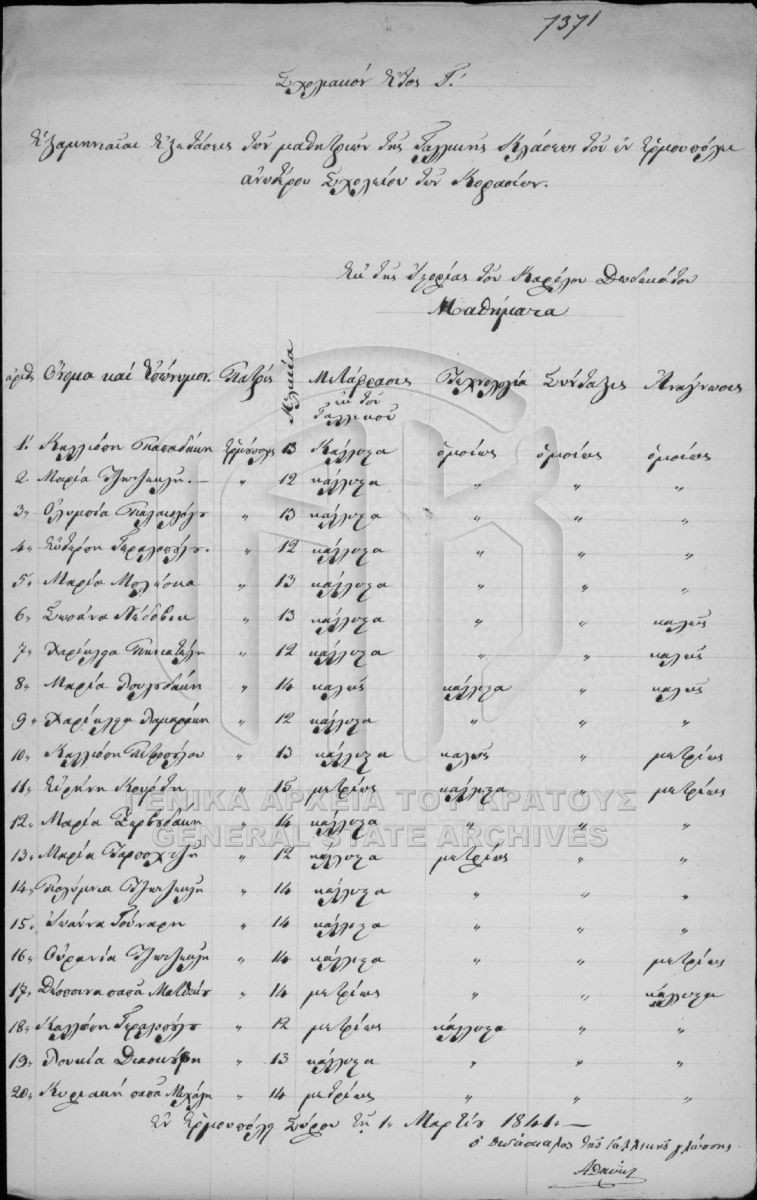 7371
Σχολιακόν Έτος Γ!
Εξαμηνιαίαι Εξετάσεις των μαθητριών της Γαλλικής Κλάσεως του εν Ερμουπόλει
ανωτέρου Σχολείου των Κορασίων.
Εκ της Ιστορίας του Καρόλου Δωδεκάτου
Μαθήματα
αριθ. Όνομα και Επώνυμον. Πατρίς Ηλικία Μετάφρασις εκ του Γαλλικού Τεχνολογία Σύνταξις Ανάγνωσις
1! Καλλιόπη Παπαδάκη Ερμούπολις 13 Κάλλιστα ομοίως ομοίως ομοίως
2. Μαρία — " 12 κάλλιστα " " "
3" Ολυμπία Παλαιολόγου " 13 κάλλιστα " " "
4" Ευτέρπη Γεραλοπούλου. " 12 κάλλιστα " " "
5" Μαρία " 13 κάλλιστα " " "
6" Σωσάνα " 13 κάλλιστα " " καλώς
7" Χαρίκλεια " 12 κάλλιστα " " καλώς
8" Μαρία " 14 καλώς κάλλιστα " καλώς
9" Χαρίκλεια " 12 κάλλιστα " " "
10" Καλλιόπη Πετροπούλου " 13 κάλλιστα καλώς " μετρίως
11" Ειρήνη Κουρτη " 15 μετρίως κάλλιστα " μετρίως
ΓΕΝΙΚΑ ΑΡΧΕΙΑ ΤΟΥ ΚΡΑΤΟΥΣ
12" Μαρία " 14 κάλλιστα " " "
GENERAL STATE ARCHIVES
13" Μαρία " 12 κάλλιστα μετρίως " "
14" Πολύμνια " 14 κάλλιστα " " "
15" Ιωάννα Γούναρη " 14 κάλλιστα " " "
16" Ουρανία " 14 κάλλιστα " " μετρίως
17" Δέσποινα παπά Ματθαίου " 14 μετρίως " " κάλλιστα
18" Καλλιόπη Γεραλοπούλου " 12 μετρίως κάλλιστα " "
19" Λουκία " 13 κάλλιστα " " "
20" Κυριακή παπά Μιχάλη " 14 μετρίως " " "
Εν Ερμουπόλει Σύρου τη 1" Μαρτίου 1841. —
ο διδάσκαλος της Γαλλικής γλώσσης